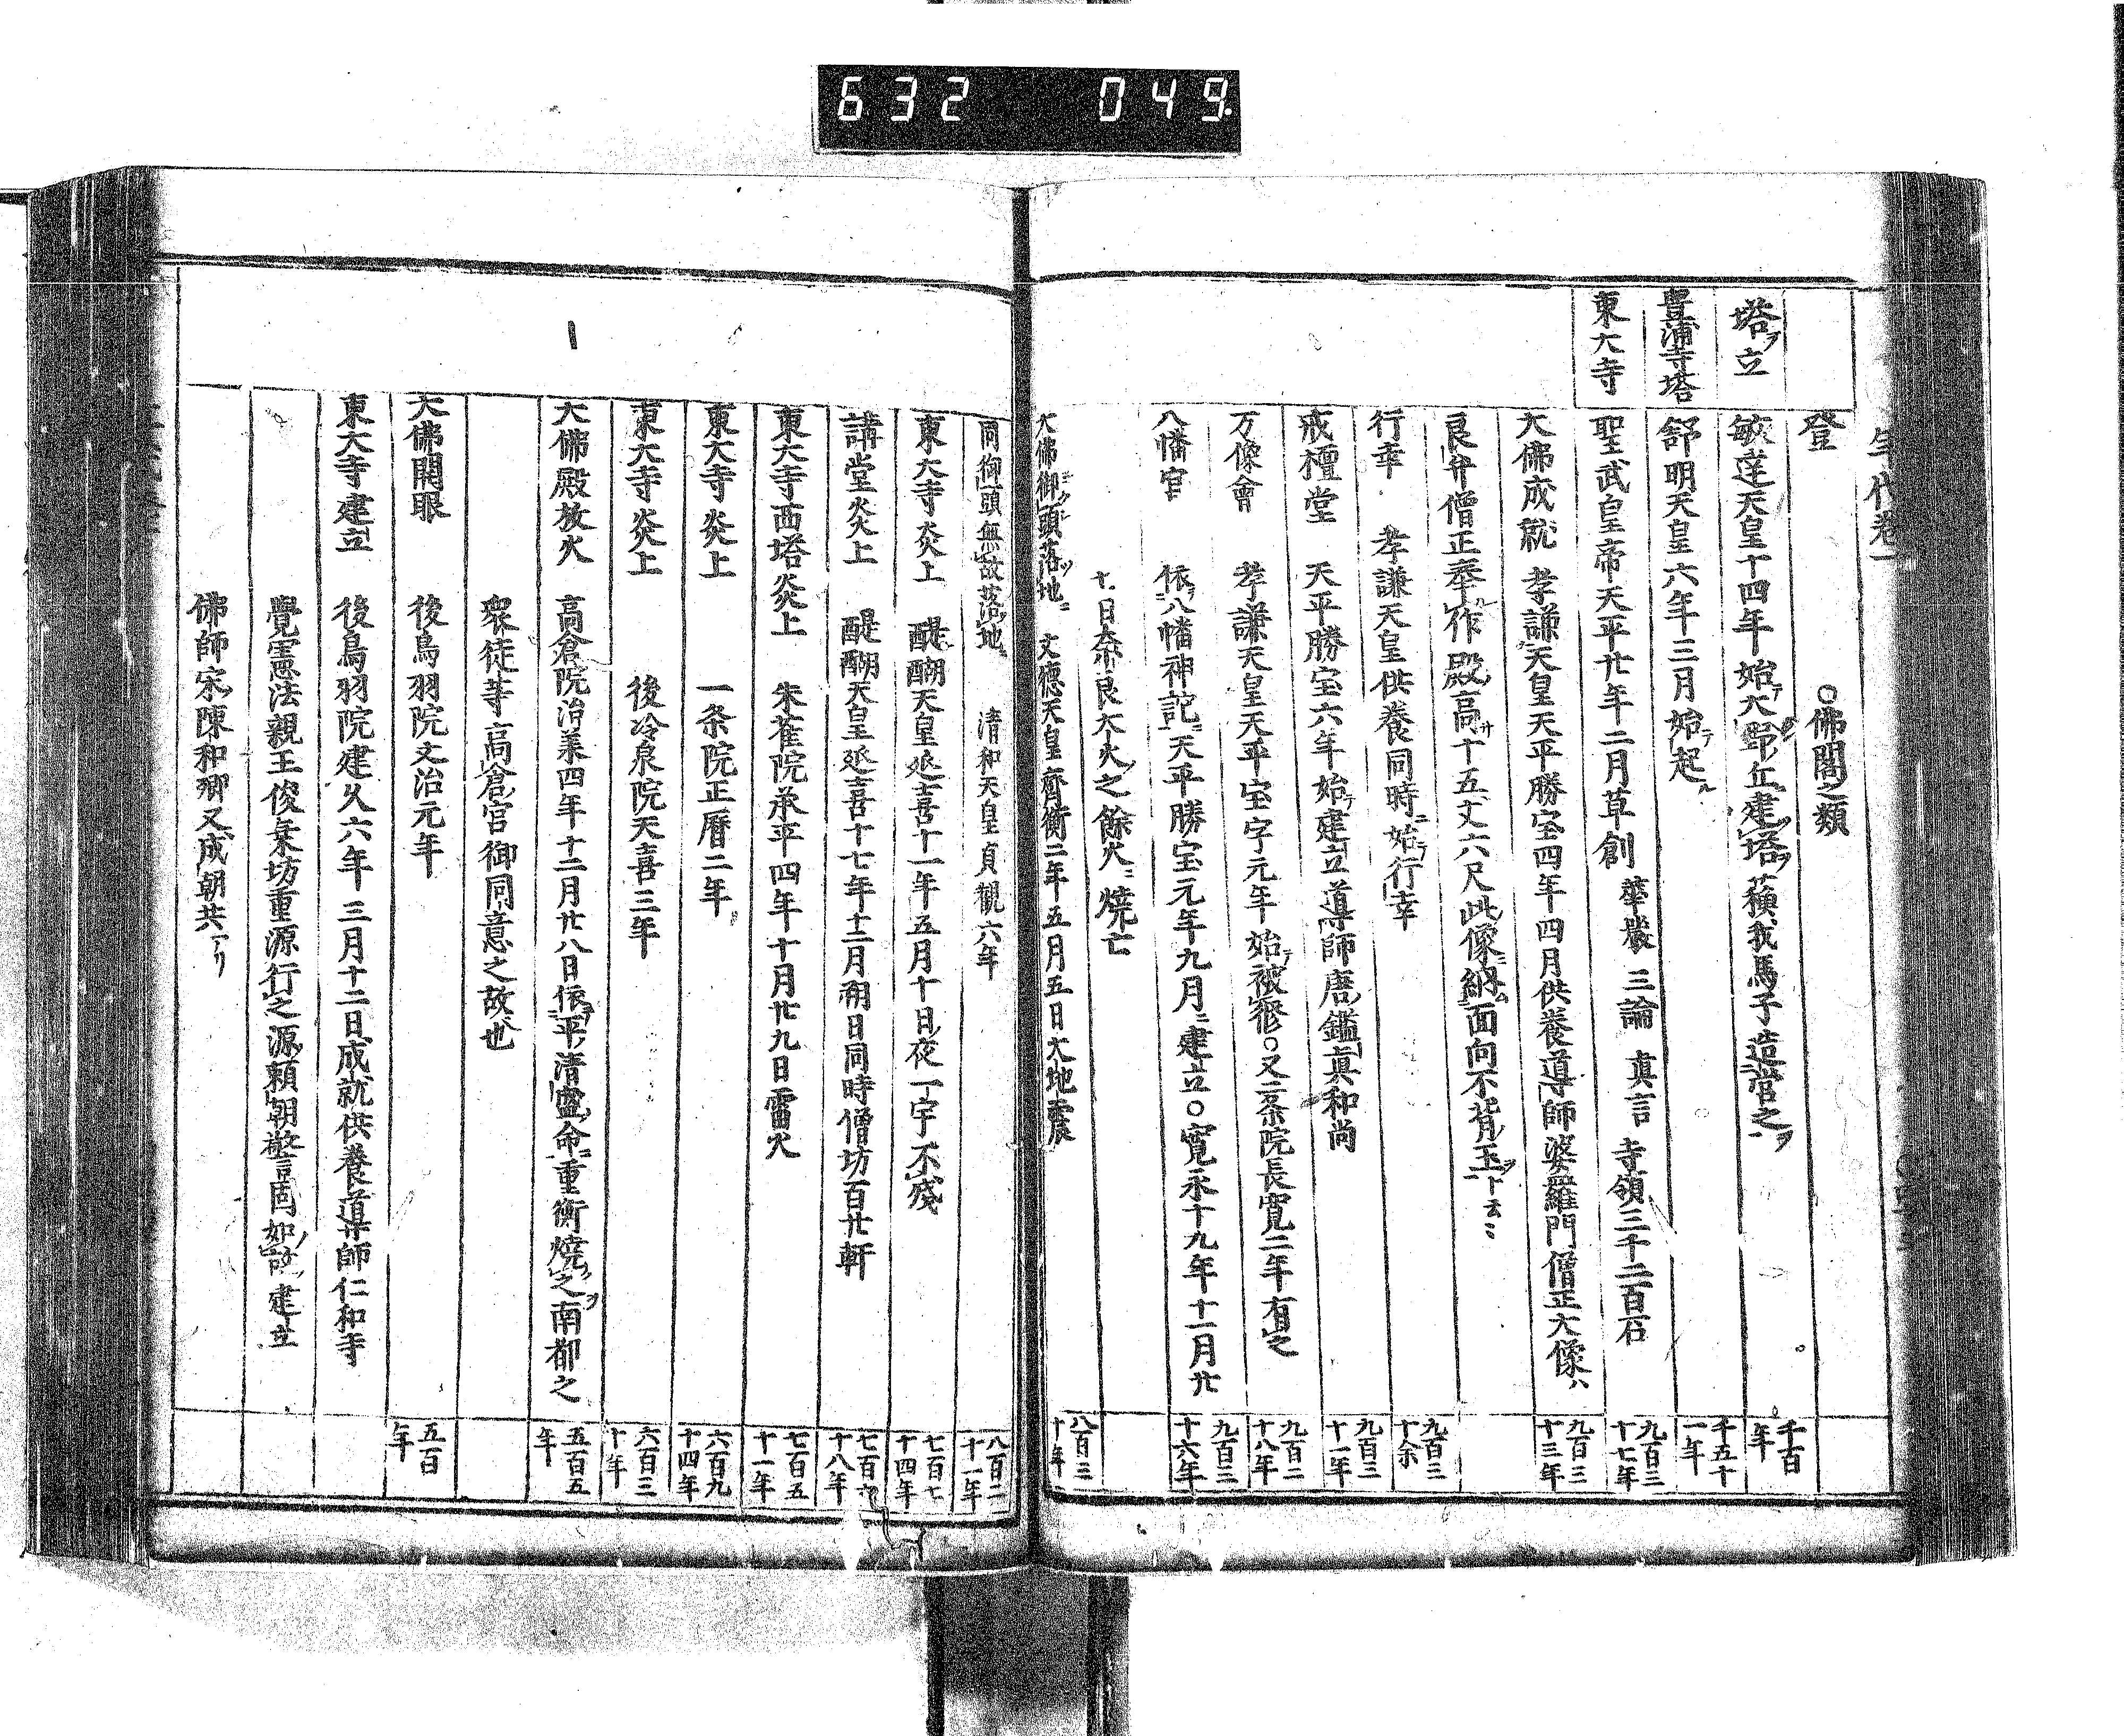 632 049.
年代卷一
登 ○佛閣之類
塔ヲ立 敏達天皇十四年始テ大野ノ丘ニ建塔ヲ蘓我馬子造営之ヲ 千百年
豊浦寺塔 舒明天皇六年三月始テ起ル 千五十一年
東大寺 聖武皇帝天平廿年二月草創 華嚴 三論 真言 寺領三千二百石 九百三十七年
大佛成就 孝謙天皇天平勝宝四年四月供養導師婆羅門僧正大像ハ 九百三十三年
良弁僧正奉作ル殿ノ高サ十五丈六尺此像ニ納ム面向不背ノ玉ヲト云〻
行幸 孝謙天皇供養同時ニ始テ行幸 九百三十余
戒檀堂 天平勝宝六年始テ建立導師唐ノ鑑真和尚 九百三十一年
万僧會 孝謙天皇天平宝字元年始テ被修○又二条院長寛二年有之 九百二十八年
八幡宮 依八幡神託ニ天平勝宝元年九月ニ建立○寛永十九年十一月廿 九百三十六年
十日奈良大火之餘火ニ焼亡
大佛御頭落地ニ 文德天皇齊衡二年五月五日大地震 八百三十年
同御頭無故落地ニ 清和天皇貞觀六年 八百二十一年
東大寺炎上 醍醐天皇延喜十一年五月十日夜一宇不殘 七百七十四年
講堂炎上 醍醐天皇延喜十七年十二月朔日同時僧坊百廿軒 七百六十八年
東大寺西塔炎上 朱雀院承平四年十月廿九日雷火 七百五十一年
東大寺炎上 一条院正曆二年 六百九十四年
東大寺炎上 後冷泉院天喜三年 六百三十年
大佛殿放火 高倉院治承四年十二月廿八日依平ノ清盛ノ命ニ重衡焼之ヲ南都之 五百五年
衆徒等高倉宮御同意之故也
大佛開眼 後鳥羽院文治元年 五百年
東大寺建立 後鳥羽院建久六年三月十二日成就供養導師仁和寺
覺憲法親王俊乗坊重源行之源ノ頼朝警固如故ノ建立
佛師宋ノ陳和卿又ハ成朝共アリ